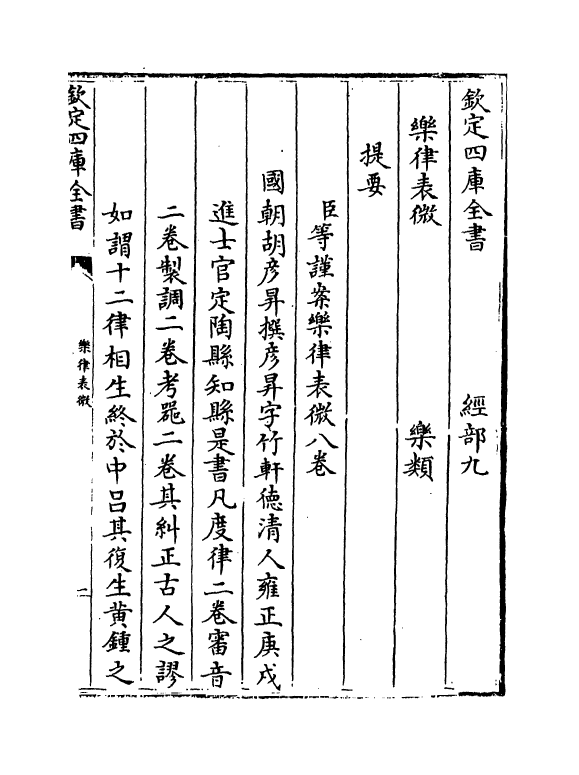 欽定四庫全書　經部九
樂律表微　樂類
提要
臣等謹案樂律表微八卷
國朝胡彦昇撰彦昇字竹軒德清人雍正庚戌
進士官定陶縣知縣是書凡度律二卷審音
二卷製調二卷考器二卷其糾正古人之謬
如謂十二律相生終於中呂其復生黄鍾之
欽定四庫全書
樂律表微
二